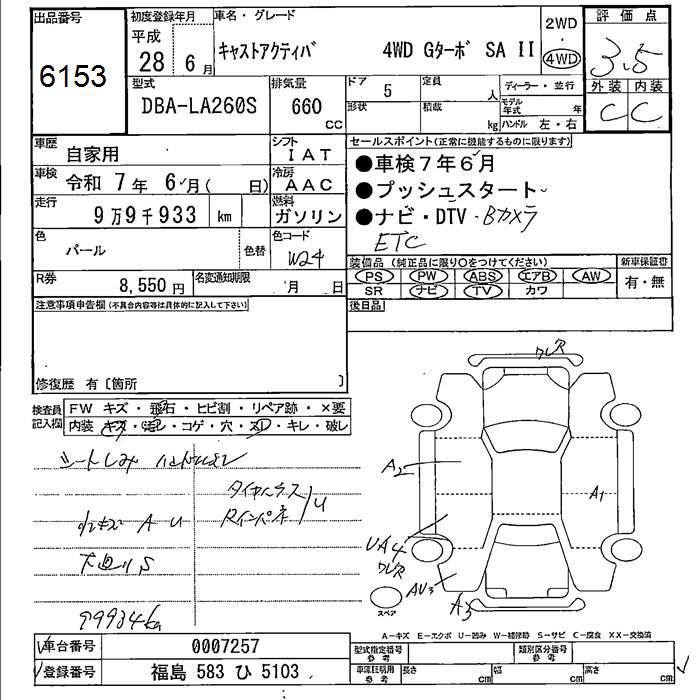 出品番号
6153
初度登録年月
平成
28年 6月
車名・グレード
キャストアクティバ 4WD Gターボ SA II
2WD
4WD
評価点
3.5
外装 内装
C C
型式
DBA-LA260S
排気量
660 cc
ドア 5
形状
定員 人
積載 kg
ディーラー・並行
モデル年式 年
ハンドル 左・右
車歴 自家用
シフト IAT
車検 令和 7年 6月( 日)
冷房 AAC
走行 9万9千933 km
燃料 ガソリン
色 パール 色替
色コード W24
R券 8,550円
名変通知期限 月 日
セールスポイント(正常に機能するものに限ります)
●車検7年6月
●プッシュスタート
●ナビ・DTV・Bカメラ
ETC
装備品(純正品に限り○をつけてください)
PS PW ABS エアB AW
SR ナビ TV カワ
新車保証書
有・無
後日品
注意事項申告欄(不具合内容等は具体的に記入して下さい)
修復歴 有〔箇所 〕
検査員記入欄
FW キズ・飛石・ヒビ割・リペア跡・×要
内装 キズ・汚れ・コゲ・穴・スレ・キレ・破レ
シートしみ
タイヤハウス
Rインパネ U
小キズ A U
下廻り S
99934km
ワレR
A2
A1
UA4
ワレR
AU3
A3
スペア
A―キズ E―エクボ U―凹み W―補修跡 S―サビ C―腐食 XX―交換済
車台番号 0007257
登録番号 福島 583 ひ 5103
型式指定番号 参考
類別区分番号 参考
車庫証明用 参考
長さ cm 幅 cm 高さ cm